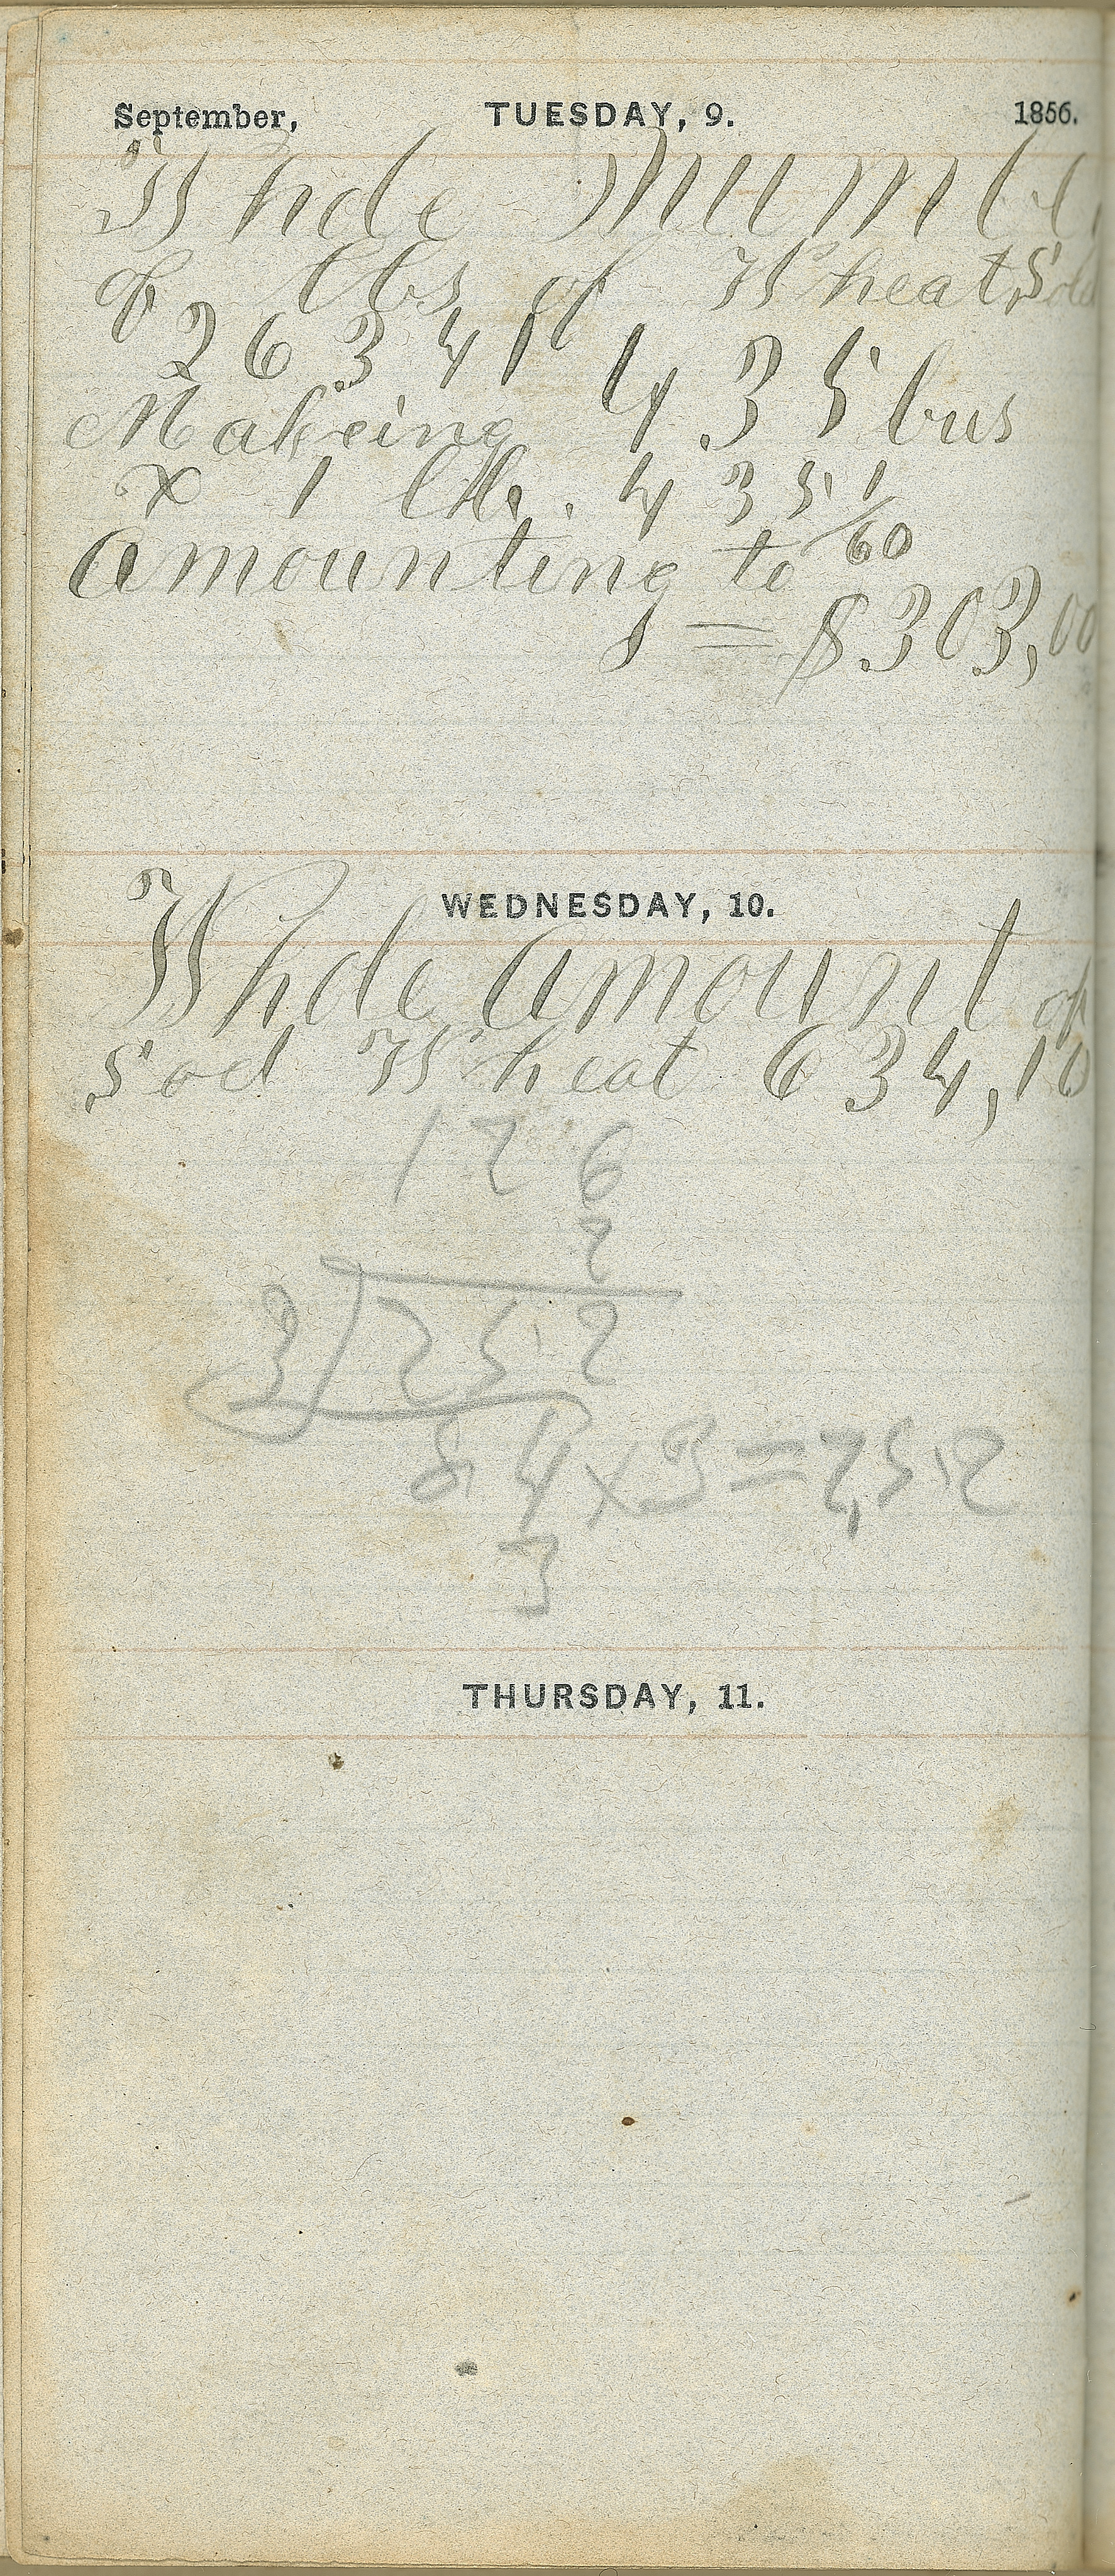 September, TUESDAY, 9. 1856.
Whole Number
of lbs of Wheat Sold
26341 435 bus
Makeing
& 1 lb. 435 1/60
amounting to
= $303,00
WEDNESDAY, 10.
Whole amount of
Sod Wheat 634,10
126
2
3)252
84x3=252
3
THURSDAY, 11.